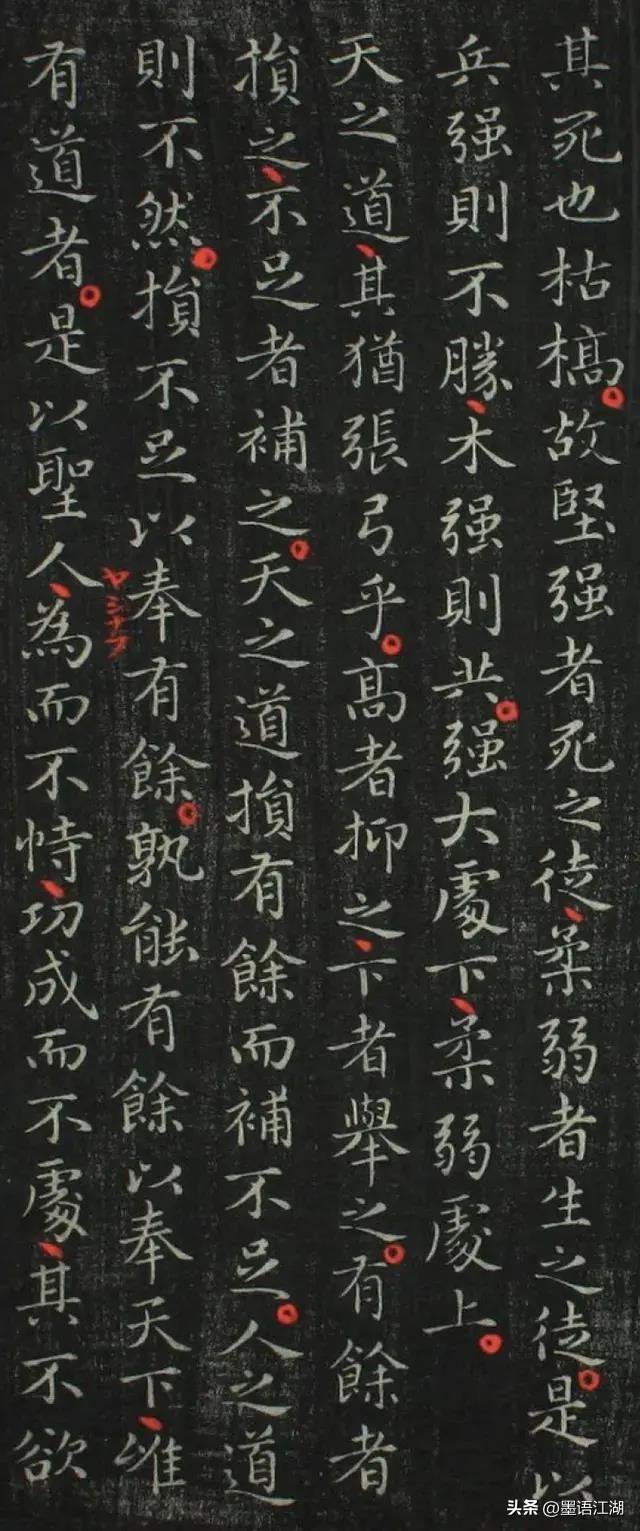 其死也枯槁。故堅强者死之徒、柔弱者生之徒。是以
兵强則不勝、木强則共。强大處下、柔弱處上。
天之道、其猶張弓乎。高者抑之、下者舉之。有餘者
損之、不足者補之。天之道損有餘而補不足。人之道
則不然。損不足以奉有餘。孰能有餘以奉天下、唯
有道者。是以聖人、為而不恃、功成而不處、其不欲
头条 @墨语江湖